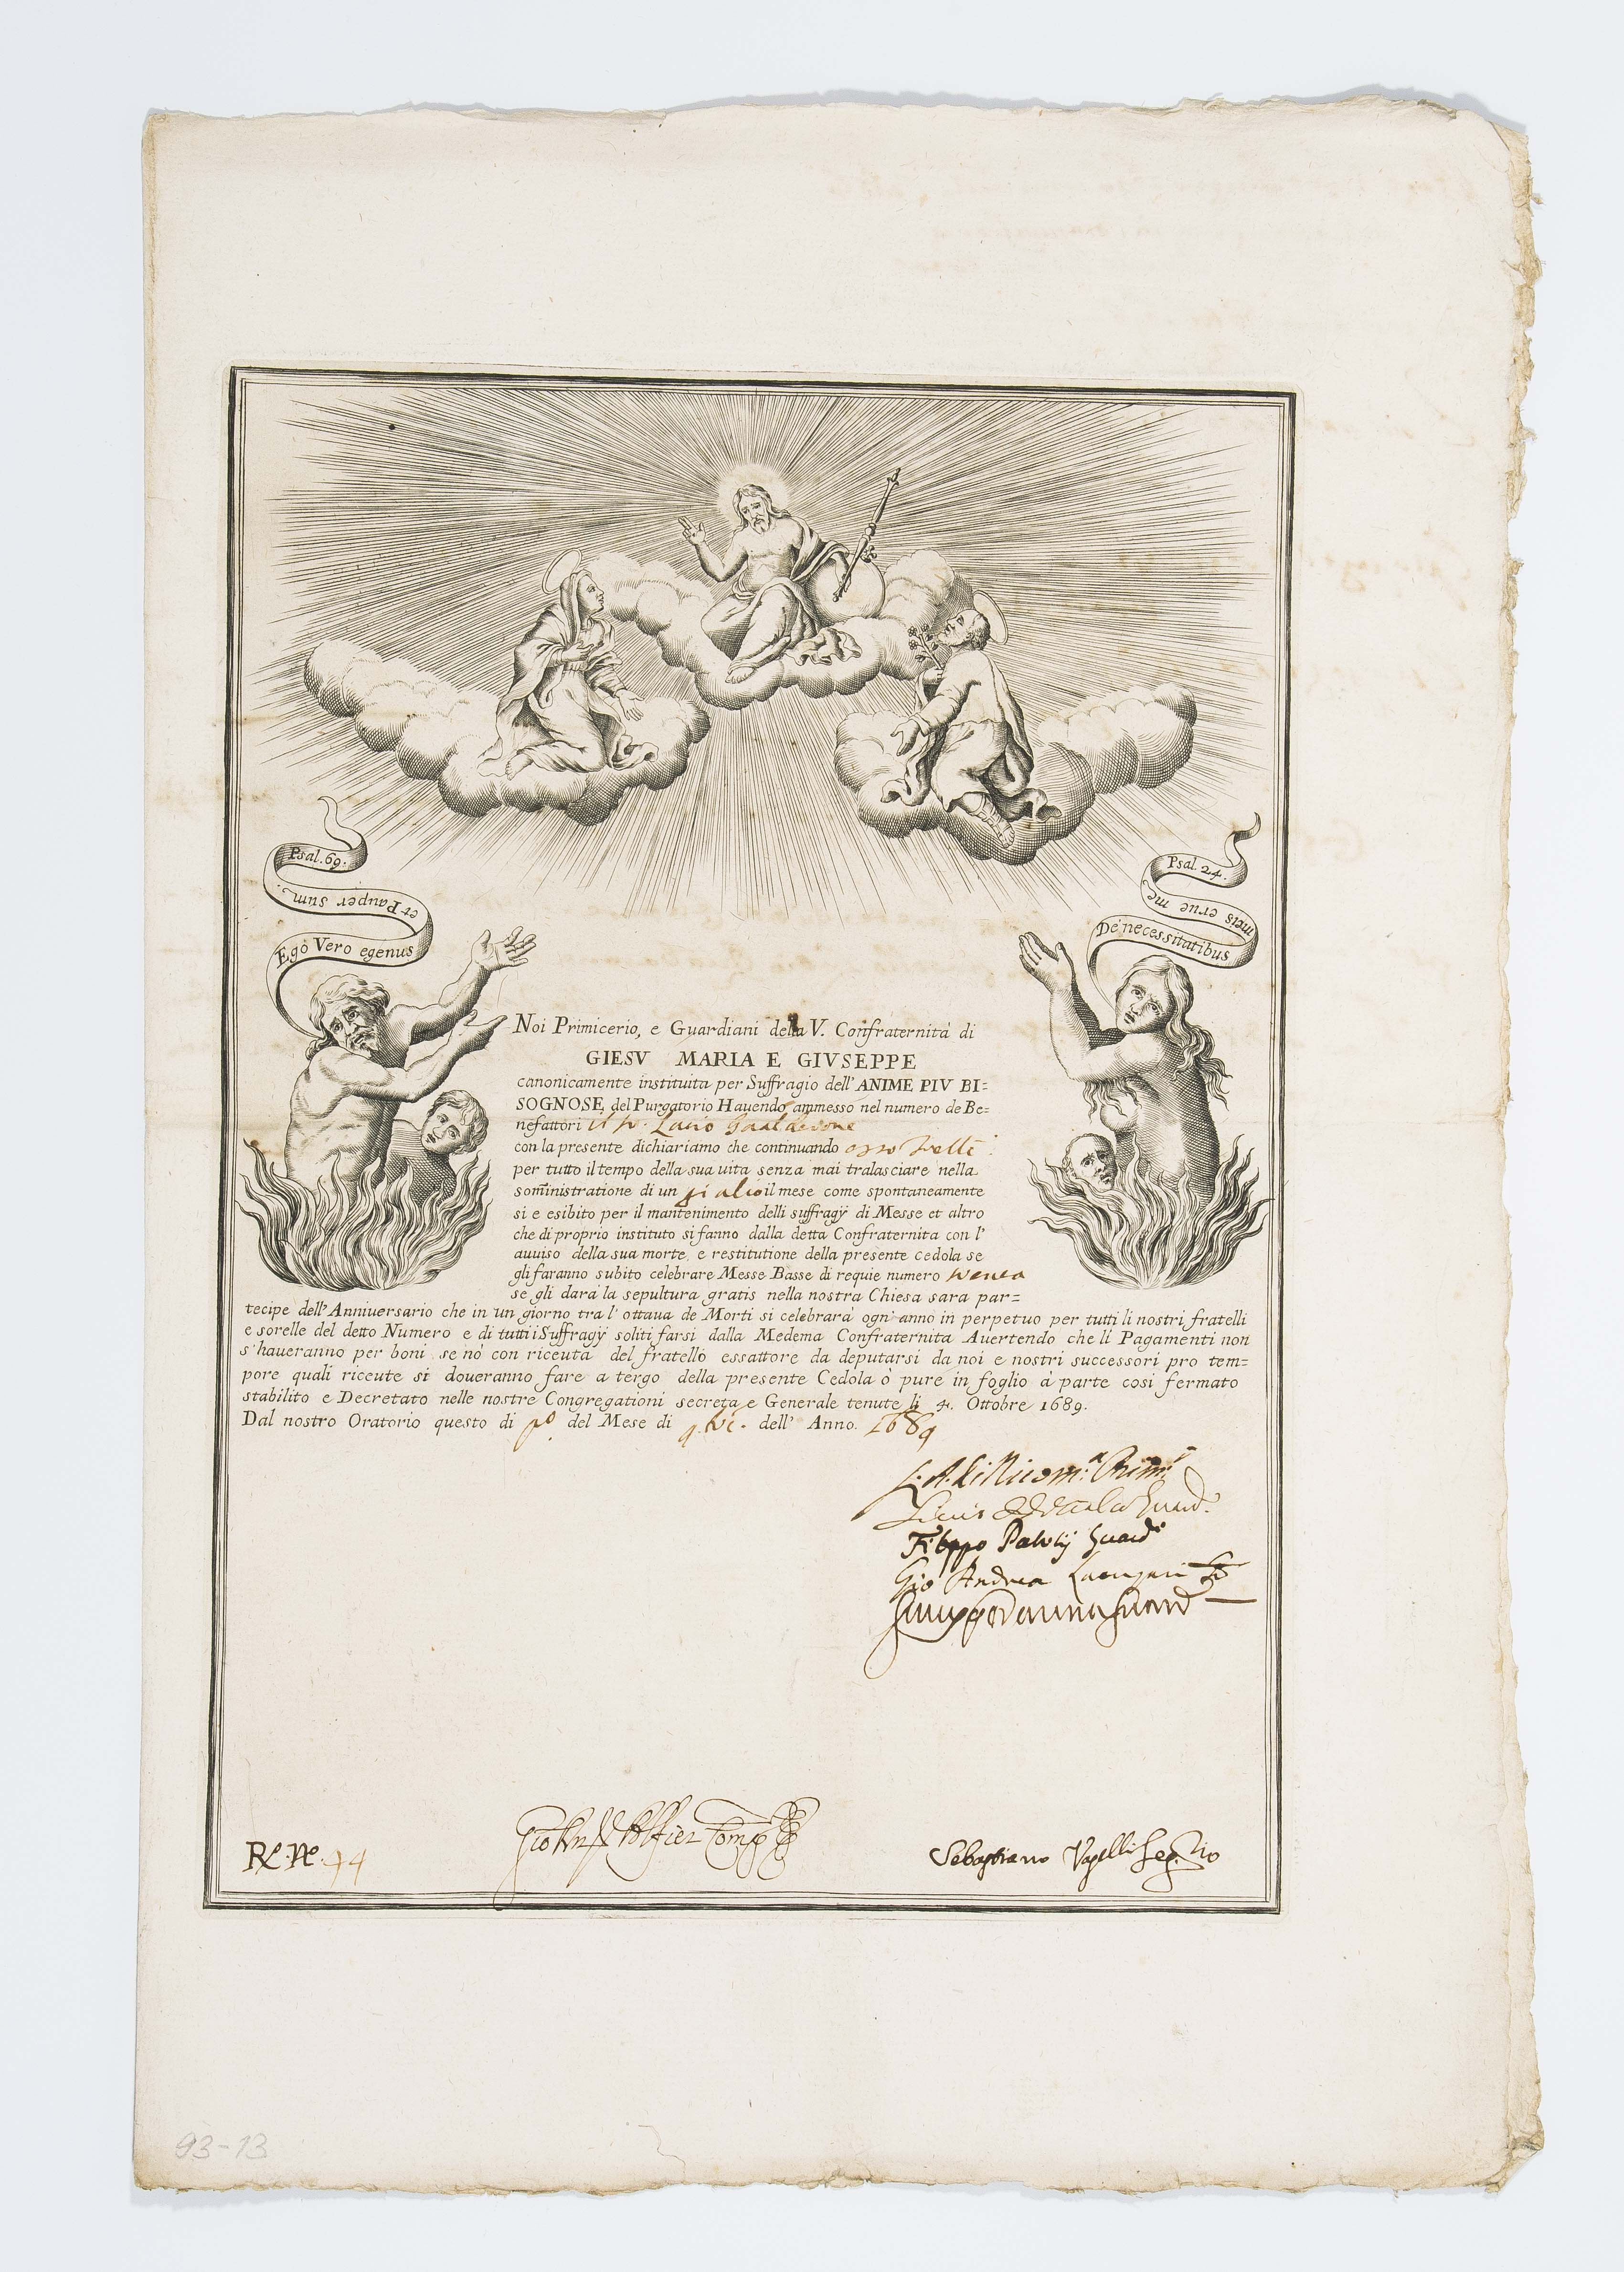 Psal. 69.
et Pauper sum.
Ego Vero egenus
Psal. 24.
meis erue me
De necessitatibus
Noi Primicerio, e Guardiani della V. Confraternità di
GIESV MARIA E GIVSEPPE
canonicamente instituita per Suffragio dell' ANIME PIV BI=
SOGNOSE, del Purgatorio Hauendo ammesso nel numero de Be=
nefattori il
con la presente dichiariamo che continuando
per tutto il tempo della sua uita senza mai tralasciare nella
soministratione di un giulio il mese come spontaneamente
si e esibito per il mantenimento delli suffragÿ di Messe et altro
che di proprio instituto si fanno dalla detta Confraternita con l'
auuiso della sua morte, e restitutione della presente cedola se
gli faranno subito celebrare Messe Basse di requie numero
se gli darà la sepultura gratis nella nostra Chiesa sara par=
tecipe dell' Anniuersario che in un giorno tra l' ottaua de Morti si celebrarà ogn' anno in perpetuo per tutti li nostri fratelli
e sorelle del detto Numero e di tutti i Suffragÿ soliti farsi dalla Medema Confraternita Auertendo che li Pagamenti non
s'haueranno per boni se nò con riceuta del fratello essattore da deputarsi da noi e nostri successori pro tem=
pore quali riceute si doueranno fare a tergo della presente Cedola ò pure in foglio à parte cosi fermato
stabilito e Decretato nelle nostre Congregationi secreta e Generale tenute li 4. Ottobre 1689.
Dal nostro Oratorio questo di po del Mese di 9.bre. dell' Anno. 1689
Filippo Guard.
Gio Andrea
Guard
Sebastiano
93-13